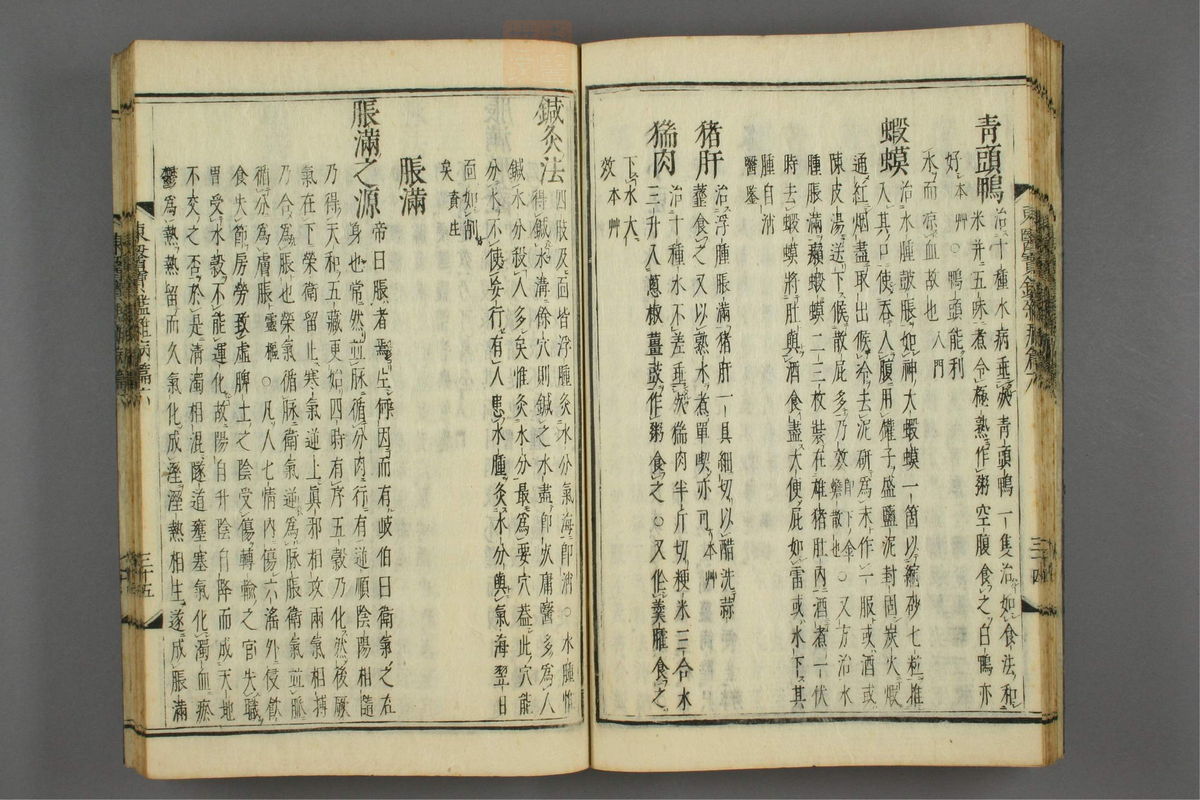 青頭鴨 治十種水病垂死青頭鴨一隻治如食法和
米幷五味煮令極熟作粥空腹食之白鴨亦
好本艸○鴨頭能利
水而凉血故也入門
蝦蟆 治水腫鼓脹如神大蝦蟆一箇以縮砂七粒推
入其口使吞入腹用罐子盛鹽泥封固炭火煅
通紅烟盡取出候冷去泥研爲末作一服或酒或
陳皮湯送下候放屁多乃效
腫脹滿癩蝦蟆二三枚裝在雄猪肚內酒煮一伏
時去蝦蟆將肚與酒食盡大便屁如雷或水下其
腫自消
醫鑒
猪肝 治浮腫脹滿猪肝一具細切以醋洗蒜
虀食之又以熟水煮單喫亦可本艸
猯肉 治十種水不差垂死猯肉半斤切粳米三合水
三升入葱椒薑豉作粥食之○又作羹臛食之
下水大
效本艸
東醫寶鑑雜病篇六
三十四
鍼灸法 四肢及面皆浮腫灸水分氣海卽消○水腫惟
得鍼水溝餘穴則鍼之水盡卽死庸醫多爲人
鍼水分殺人多矣惟灸水分最爲要穴蓋此穴能
分水不使妄行有人患水腫灸水分與氣海翌日
面如削
矣資生
脹滿
脹滿之源 帝曰脹者焉生何因而有岐伯曰衛氣之在
身也常然並脉循分肉行有逆順陰陽相隨
乃得天和五藏更始四時有序五穀乃化然後厥
氣在下榮衛留止寒氣逆上眞邪相攻兩氣相搏
乃合爲脹也榮氣循脉衛氣逆爲脉脹衛氣並脉
循分爲膚脹靈樞○凡人七情內傷六淫外侵飮
食失節房勞致虛脾土之陰受傷轉輸之官失職
胃受水穀不能運化故陽自升陰自降而成天地
不交之否於是淸濁相混隧道壅塞氣化濁血瘀
鬱爲熱熱留而久氣化成濕濕熱相生遂成脹滿
東醫寶鑑雜病篇六
三十五